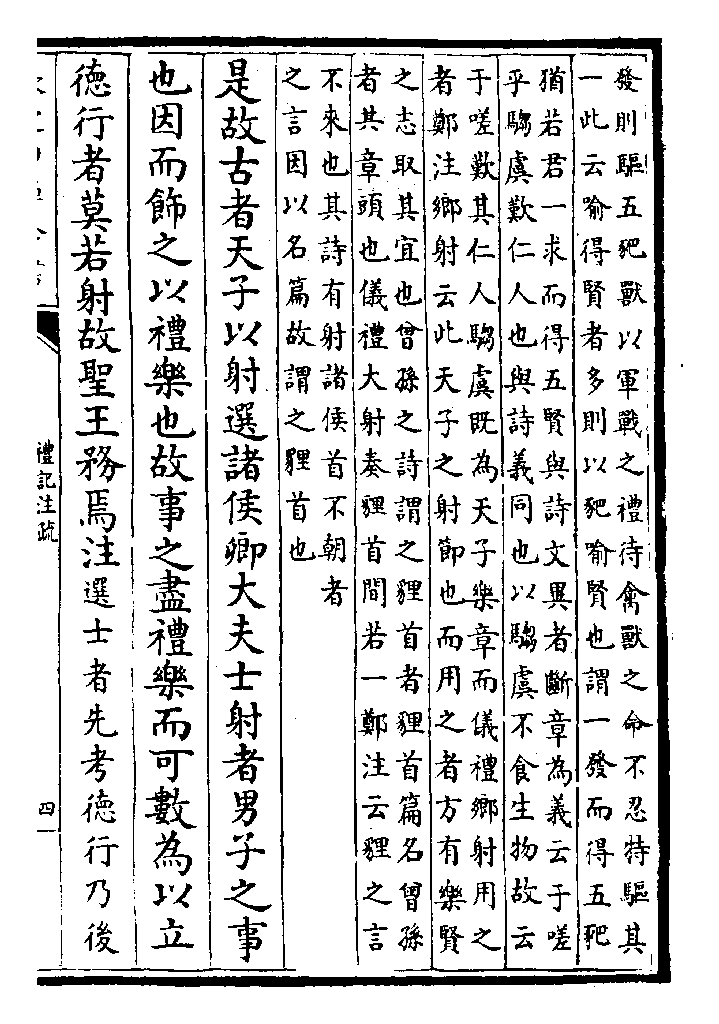 發則驅五豝獸以軍戰之禮待禽獸之命不忍特驅其
一此云喻得賢者多則以豝喻賢也謂一發而得五豝
猶若君一求而得五賢與詩文異者斷章為義云于嗟
乎騶虞歎仁人也與詩義同也以騶虞不食生物故云
于嗟歎其仁人騶虞既為天子樂章而儀禮鄉射用之
者鄭注鄉射云此天子之射節也而用之者方有樂賢
之志取其宜也曾孫之詩謂之貍首者貍首篇名曾孫
者其章頭也儀禮大射奏貍首間若一鄭注云貍之言
不來也其詩有射諸侯首不朝者
之言因以名篇故謂之貍首也
是故古者天子以射選諸侯卿大夫士射者男子之事
也因而飾之以禮樂也故事之盡禮樂而可數為以立
徳行者莫若射故聖王務焉注選士者先考徳行乃後
禮記注疏
四